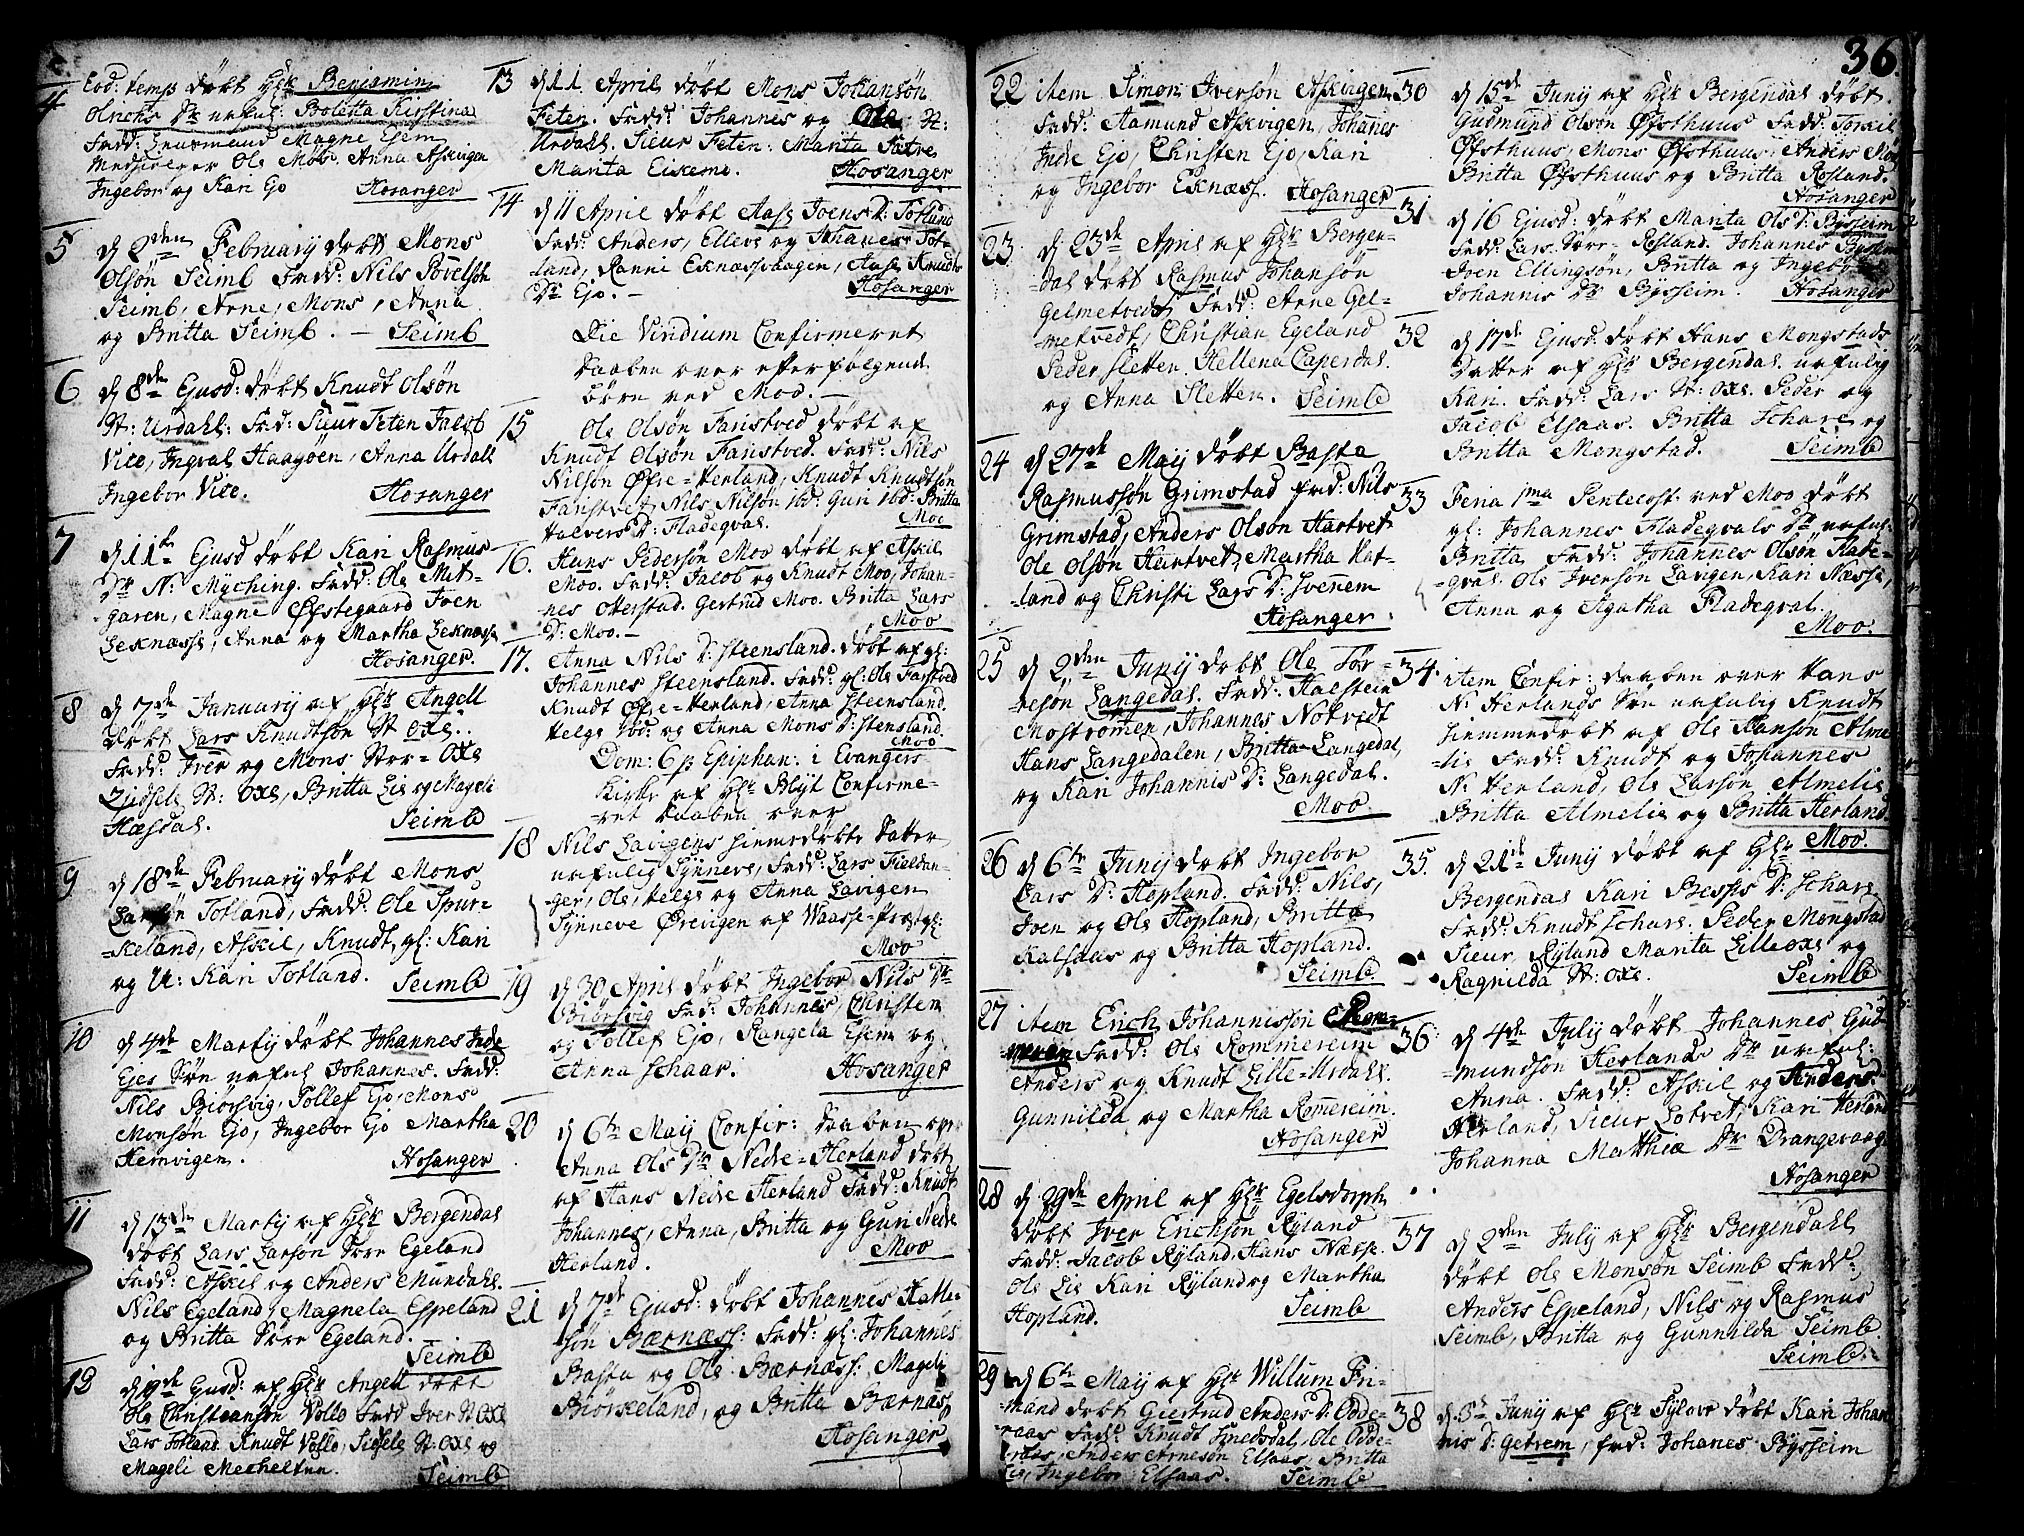 36.
4
Eod: temp døbt Hr Benjamin
Olrichs Dr nafnl: Boletta Kirstina
Fadd: Lensmand Magne Esem
Medhielper Ole Moe. Anna Askvigen
Ingebor og Kari Ejo Hosanger
5
d 2den February døbt Mons
Olsøn Seimb Fadd: Nils Povelsøn
Seimb, Arne, Mons, Anna
og Britta Seimb. - Seimb
6
d 8de Ejusd: døbt Knudt Olsøn
St: Urdahl: Fad: Sieur Feten Jacob
Vice, Ingval Haagøen, Anna Urdall
Ingebor Vice. Hosanger
7
d 11te Ejusd døbt Kari Rasmus
Dr N: Myching. Fadd: Ole Mit-
garen, Magne Øfstegaard Joen
Leknæss, Anna og Martha Leknæss
Hosanger.
8
d 7de January af Hr Angell
døbt Lars Knudtsøn St Oxe.
Fadd: Iver og Mons Stor-Oxe
Zidsele St: Oxe, Britta Lie og Mageli
Hæsdal. Seimb
9
d 18de February døbt Mons
Larsøn Totland, Fadd: Ole Spur-
-keland, Askil, Knudt, gl: Kari
og U: Kari Totland. Seimb
10
d 4de Martij døbt Johannes Indr
Ejes Søn nafnl Johannes. Fadd:
Nils Biørsvig, Tollef Ejo, Mons
Monsøn Ejo, Ingebor Ejo Martha
Hemvigen. Hosanger
11
d 13de Martij af Hr Bergendal
døbt Lars Larsøn Sørr Egeland
Fadd: Askil og Anders Mundahl.
Nils Egeland, Magnela Espeland
og Britta Sørr Egeland.
Seimb
12
Ejusd: af Hr Angell døbt
Ole Christiansøn Vollo Fadd Iver St Oxe
Lars Totland. Knudt Vollo, Sidsele St. Oxe og
Mageli Mecheltun. Seimb
13
d 11 April døbt Mons Johansøn
Feten. Fadd: Johannes og Ole St:
Urdahl. Sieur Feten. Marita Sætre
Marita Eikemo. Hosanger
14
d 11 April døbt Aase Joens D: Totland
Fadd: Anders, Ellevs og Johanes Tot-
land, Ranni Eknæssvaagen, Aase Knudts
Dr Ejo. - Hosanger
Die Viridium Confirmeret
Daaben over efterfølgende
børn ved Moo. -
15
Ole Olsøn Fanstved døbt af
Knudt Olsøn Fanstved. Fadd: Nils
Nilsøn Øfre-Herland, Knudt Knudtsøn
Fanstvet, Nils Nilsøn ibd: Guri ibd: Britta
Halvors D: Fladeqval. Moe
16.
Hans Pedersøn Moo døbt af Askil
Moo. Fadd: Jacob og Knudt Moo, Johan-
-nes Otterstad. Gertrud Moo. Britta Lars
D: Moo. - Moo
17.
Anna Nils D: Steensland. døbt af gl:
Johannes Steensland. Fadd: gl: Ole Fanstved
Knudt Øfre-Herland, Anna Steensland.
Helge ibd: og Anna Mons D: Stensland.
Moo
Dom: 6 p Epiphan: i Evangers
Kirke af Hr Blyt Confirme-
ret Daaben over
18
Nils Lavigens hiemmedøbte Datter
nafnlig Synneve, Fadd: Lars Fieldan-
ger, Ole, Helge og Anna Lavigen
Synneve Ørevigen af Waasse-Præstgl:
Moo
19
d 30 April døbt Ingebor Nils Dr
Biørsvig Fad: Johannes, Christen
og Tollef Ejo, Rangela Esem og
Anna Schaar. Hosanger
20
d 6te Maij Confir: Daaben over
Anna Ols Dr Nedre-Herland døbt
af Hans Nedre Herland Fadd: Knudt
Johannes, Anna, Britta og Guri Nedre
Herland. Moo
21
d 7de Ejusd: døbt Johannes Halle-
søn Bærnæss: Fadd: gl: Johannes
Basta og Ole Bærnæss: Mageli
Biørkeland, og Britta Bærnæss
Hosanger
22
item Simon Iversøn Askvigen
Fadd: Aamund Askvigen, Johanes
Indre Ejo, Christen Ejo, Kari
og Ingebor Eknæss. Hosanger
23
d 23de April af Hr Bergen-
dal døbt Rasmus Johansøn
Gelmetvedt Fadd: Arne Gel-
metvedt, Christian Egeland
Peder Sletten. Hellena Caperdal
og Anna Sletten. Seimb
24
d 27de Maij døbt Basta
Rasmussøn Grimstad Fad: Nils
Grimstad, Anders Olsøn Hartvet
Ole Olsøn Hartvet, Martha Hat-
-land og Christi Lars D: Svenem
Hosanger.
25
d 2den Junij døbt Ole Tør-
resøn Langedal. Fadd: Halstein
Mostrømen, Johannes Notvedt
Hans Langedalen, Britta Langedal,
og Kari Johannis D: Langedal.
Moo
26
d 6te Junij døbt Ingebor
Lars D: Hopland. Fadd: Nils,
Joen og Ole Hopland, Britta
Kalsaas og Britta Hopland.
Seimb.
27
item Erich Johannissøn
Fadd: Ole Rommereim
Anders og Knudt Lille-Urdahl.
Gunnilda og Martha Romereim.
Hosanger
28
d 29de April af Hr Egelsdorph
døbt Iver Erichsøn Ryland
Fadd: Jacob Ryland, Hans Næss.
Ole Lie Kari Ryland og Martha
Hopland. Seimb
29
d 6te Maij af Hr Willum Fri-
-mand døbt Giertrud Anders D: Odde-
-raas Fadd: Knudt Smedsdal, Ole Odde-
raas, Anders Arnesøn Elsaas, Britta
Lie, Ingebor Elsaas. Seimb
30
d 15de Junij af Hr Bergendal døbt
Gudmund Olsøn Øfsthuus Fadd: Torkil
Øfsthuus, Mons Øfsthuus, Anders
Britta Øfsthuus og Britta Rosland.
Hosanger
31
d 16 Ejusd: døbt Marita Ols D: Bysseim
Fadd: Lars Sørr-Rosland. Johannes Bysseim
Joen Ellingsøn, Britta og Ingebor
Johannis Dr Bysseim. Hosanger
32
d 17de Ejusd: døbt Hans Mongstads
Datter af Hr Bergendal nafnlig
Kari. Fadd: Lars St: Oxe. Peder og
Jacob Elsaas. Britta Schare og
Britta Mongstad. Seimb
33
Feria 1ma Pentecost: ved Moo døbt
gl: Johannes Fladeqvals Dr nafnl:
Britta Fadd: Johannes Olsøn Flade-
-qval. Ole Iversøn Lavigen, Kari Næsse,
Anna og Agatha Fladeqval.
Moo.
34.
item Confir: Daaben over Hans
N: Herlands Søn nafnlig Knudt
hiemmedøbt af Ole Hansøn Alme-
-lie Fadd: Knudt og Johannes
N: Herland, Ole Larsøn Almelie
Britta Almelie og Britta Herland.
Moo.
35.
d 21de Junij døbt af Hr
Bergendal Kari Besses D: Schare
Fadd: Knudt Schare. Peder Mongstad
Sieur Ryland Marita Lilleoxe og
Ragnilda St: Oxe. Seimb
36.
d 4de July døbt Johannes Gud-
mundsøn Herlands Dr nafnl:
Anna. Fadd: Askil og Anders
Herland, Sieur Lotvet, Kari Herland
Johanna Matthiæ Dr Drangevaag
Hosanger
37
d 2den July af Hr Bergendahl
døbt Ole Monsøn Seimb Fadd:
Anders Espeland, Nils og Rasmus
Seimb, Britta og Gunnilda Seimb.
Seimb.
38
d. 5te Junij af Hr Sylove døbt Kari Johan
nis D: Getrem, Fad: Johanes Bysseim